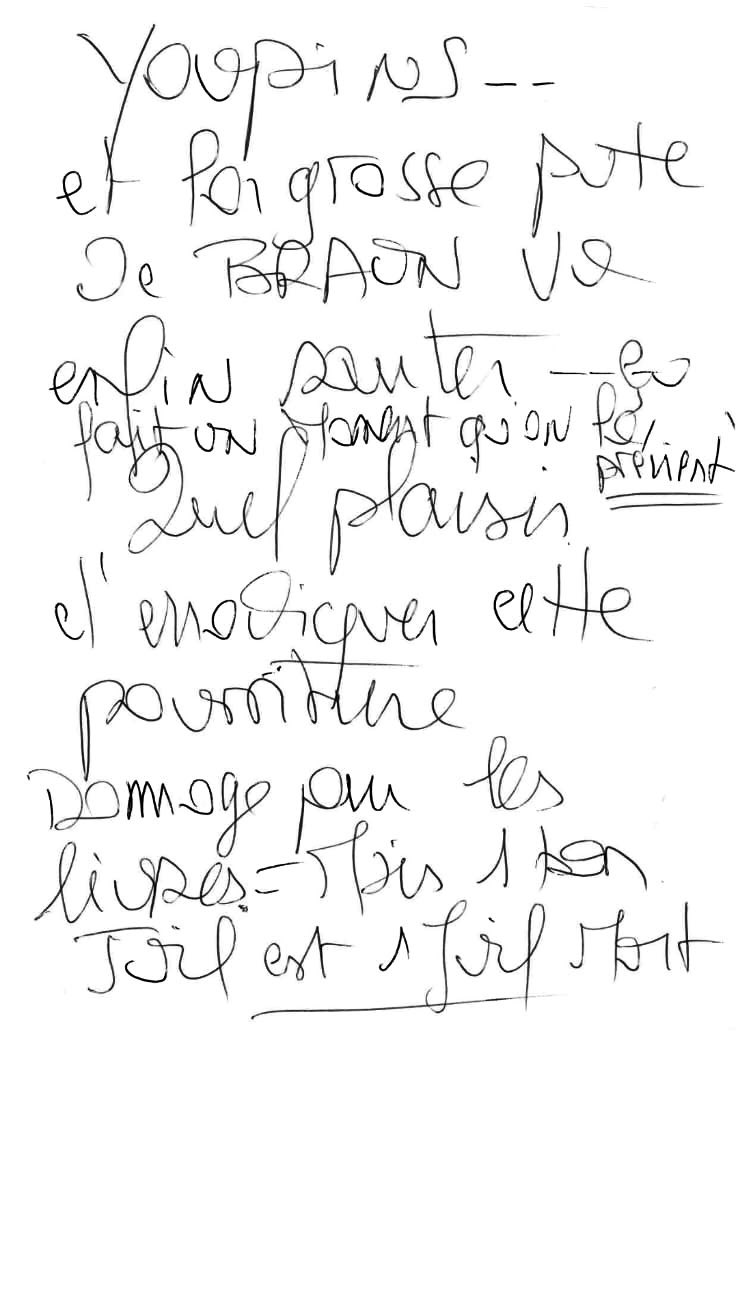 Youpins --
et la grosse pute
de BRAUN va
enfin sauter -- ça
fait un moment qu'on la
prévient
Quel plaisir
d'eradiquer cette
pourriture
Dommage pour les
livres - Mais 1 bon
Juif est 1 Juif Mort